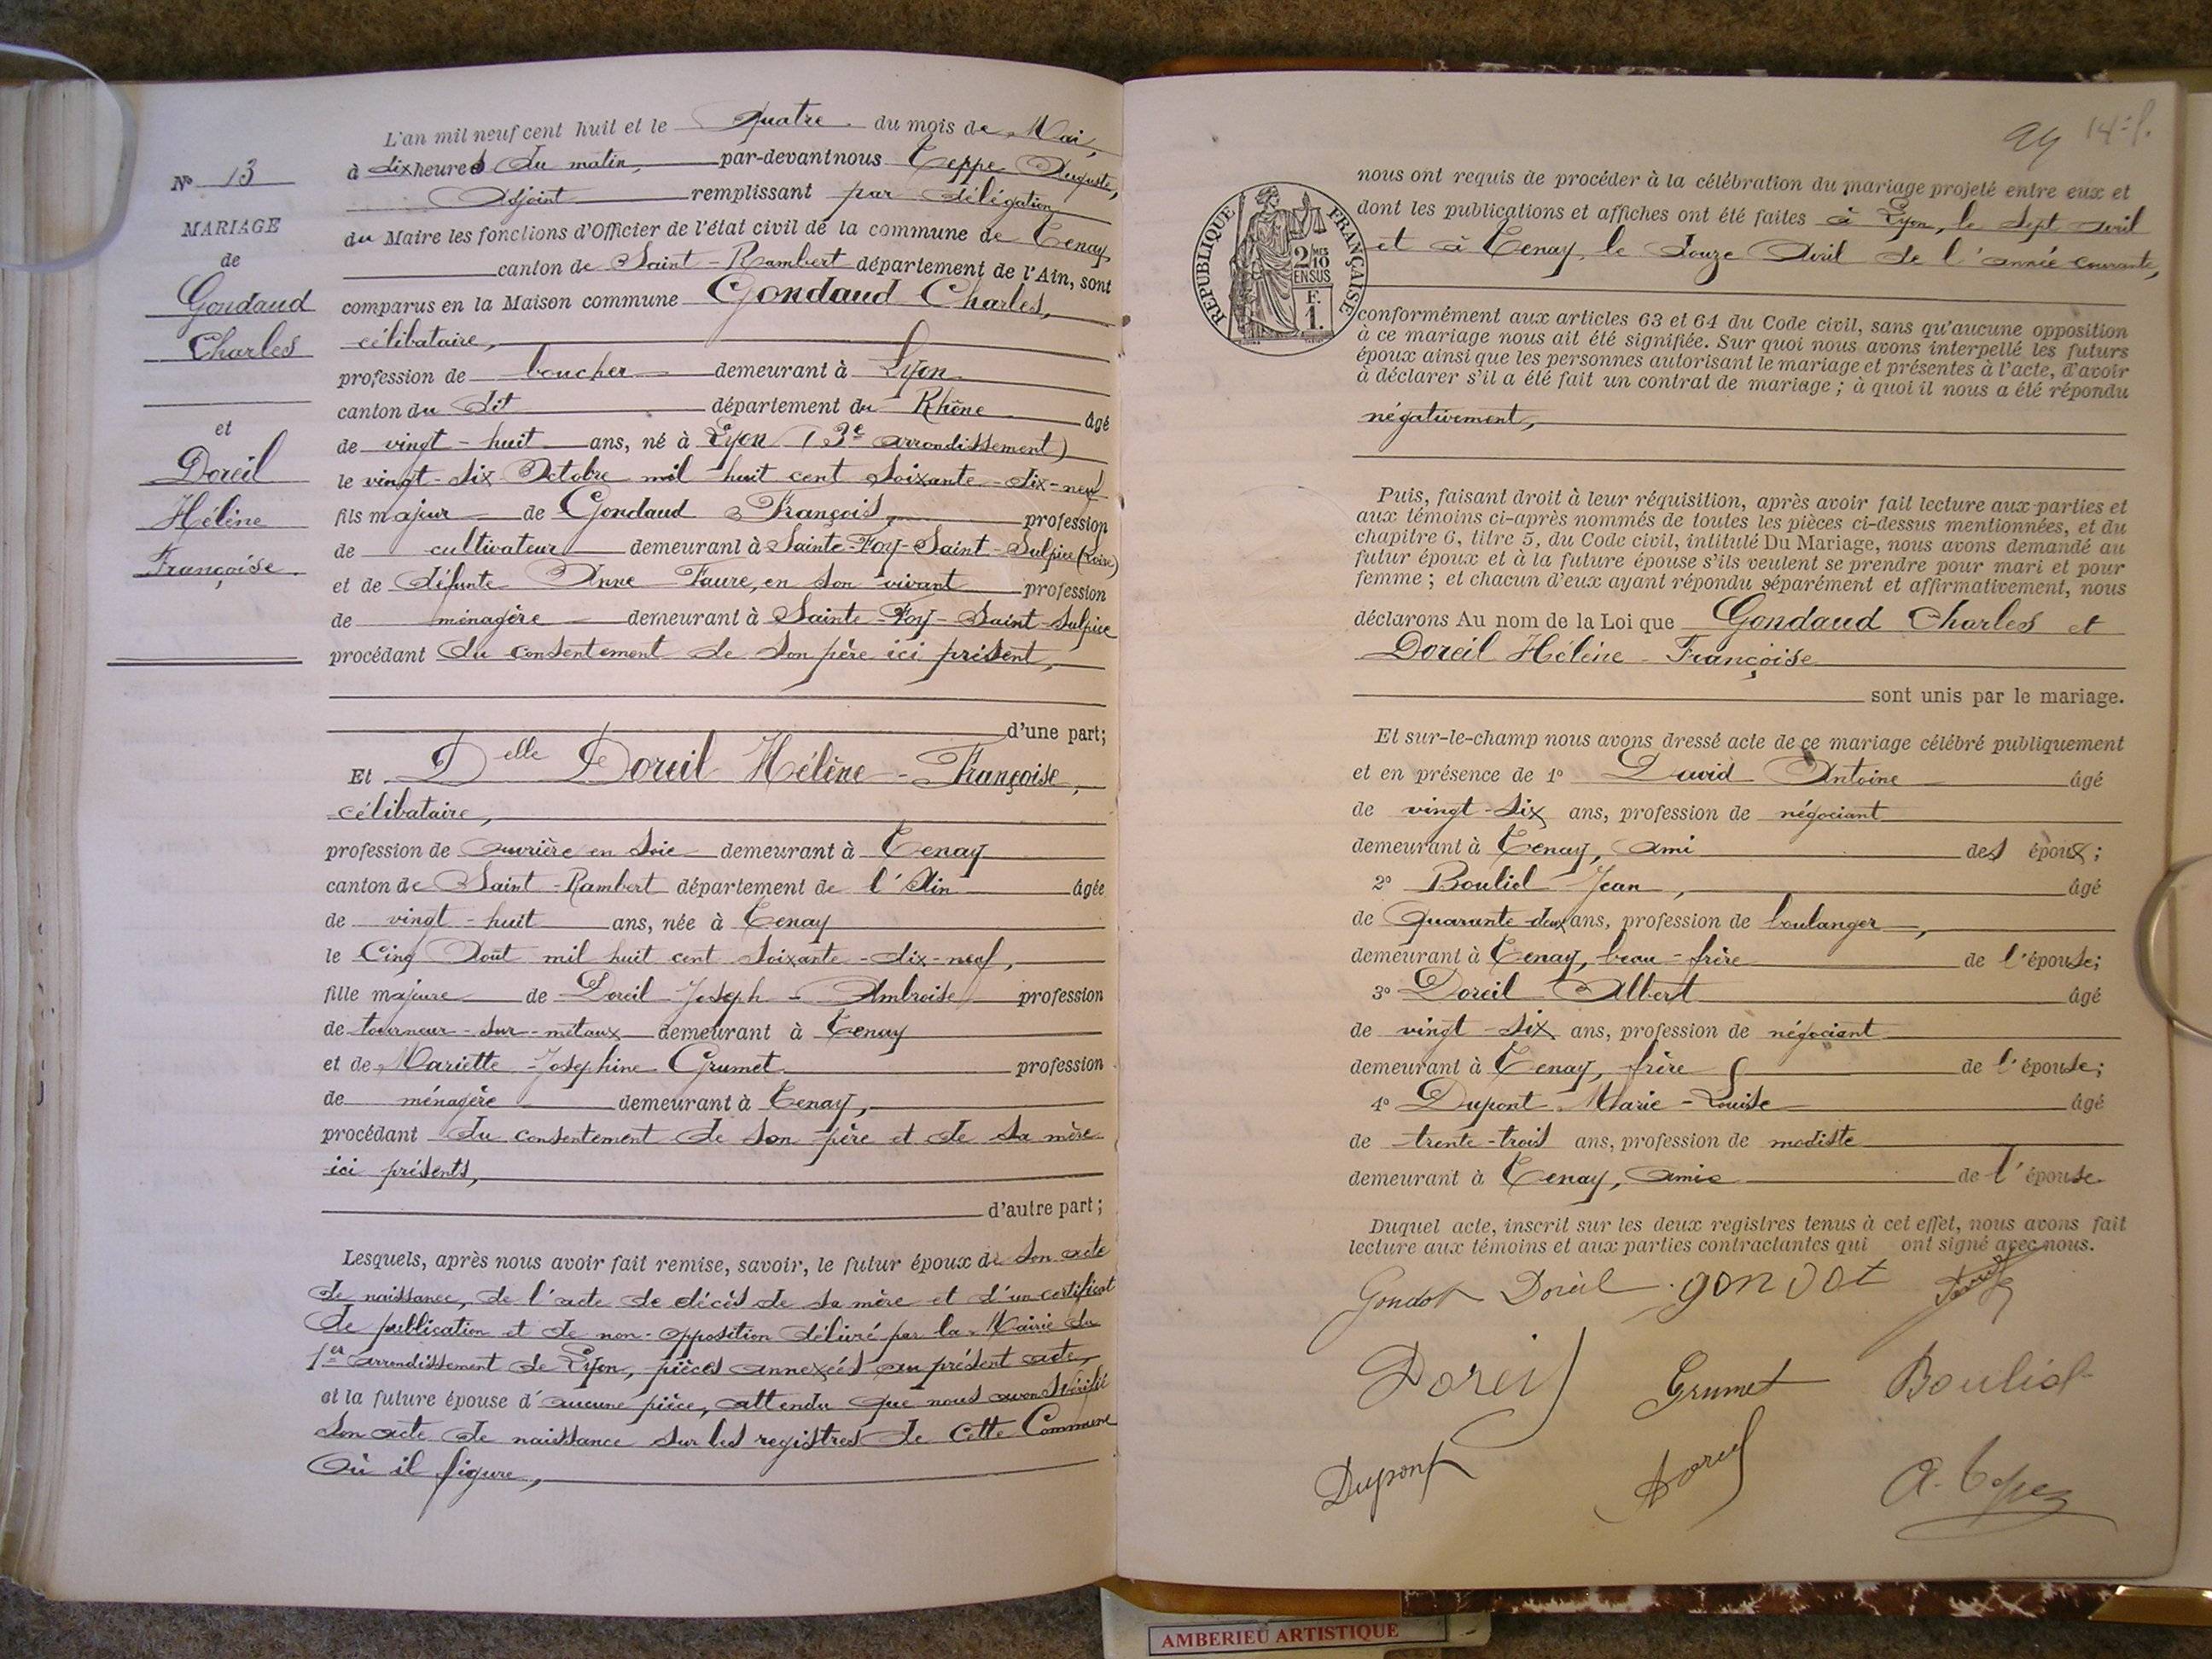 L'an mil neuf cent huit et le Quatre du mois de Mai,
à dix heures du matin, par-devant nous Teppe Auguste,
Adjoint remplissant par délégation
du Maire les fonctions d'Officier de l'état civil de la commune de Tenay
canton de Saint-Rambert département de l'Ain, sont
comparus en la Maison commune Gondaud Charles,
célibataire,
profession de boucher demeurant à Lyon
canton du dit département du Rhône âgé
de vingt-huit ans, né à Lyon (3e arrondissement)
le vingt-six Octobre mil huit cent soixante-dix-neuf
fils majeur de Gondaud François, profession
de cultivateur demeurant à Sainte-Foy-Saint-Sulpice (Loire)
et de défunte Anne Faure, en son vivant profession
de ménagère demeurant à Sainte-Foy-Saint-Sulpice
procédant du consentement de son père ici présent,
d'une part;
Et Delle Doreil Hélène-Françoise,
célibataire,
profession de ouvrière en soie demeurant à Tenay
canton de Saint-Rambert département de l'Ain âgée
de vingt-huit ans, née à Tenay
le Cinq Août mil huit cent soixante-dix-neuf,
fille majeure de Doreil Joseph-Ambroise profession
de tourneur-sur-métaux demeurant à Tenay
et de Mariette-Joséphine Grumet profession
de ménagère demeurant à Tenay,
procédant du consentement de son père et de sa mère
ici présents,
d'autre part;
Lesquels, après nous avoir fait remise, savoir, le futur époux de son acte
de naissance, de l'acte de décès de sa mère et d'un certificat
de publication et de non-opposition délivré par la Mairie du
1er arrondissement de Lyon, pièces annexées au présent acte,
et la future épouse d'aucune pièce, attendu que nous avons vérifié
son acte de naissance sur les registres de cette Commune
Où il figure,
No 13
MARIAGE
de
Gondaud
Charles
et
Doreil
Hélène
Françoise.
14:f.
RÉPUBLIQUE FRANÇAISE
2/10
EN SUS
F.
1.
nous ont requis de procéder à la célébration du mariage projeté entre eux et
dont les publications et affiches ont été faites à Lyon, le sept avril
et à Tenay, le douze Avril de l'année courante,
conformément aux articles 63 et 64 du Code civil, sans qu'aucune opposition
à ce mariage nous ait été signifiée. Sur quoi nous avons interpellé les futurs
époux ainsi que les personnes autorisant le mariage et présentes à l'acte, d'avoir
à déclarer s'il a été fait un contrat de mariage ; à quoi il nous a été répondu
négativement,
Puis, faisant droit à leur réquisition, après avoir fait lecture aux parties et
aux témoins ci-après nommés de toutes les pièces ci-dessus mentionnées, et du
chapitre 6, titre 5, du Code civil, intitulé Du Mariage, nous avons demandé au
futur époux et à la future épouse s'ils veulent se prendre pour mari et pour
femme ; et chacun d'eux ayant répondu séparément et affirmativement, nous
déclarons Au nom de la Loi que Gondaud Charles et
Doreil Hélène-Françoise
sont unis par le mariage.
Et sur-le-champ nous avons dressé acte de ce mariage célébré publiquement
et en présence de 1o David Antoine âgé
de vingt-six ans, profession de négociant
demeurant à Tenay, ami des époux;
2o Bouliel Jean, âgé
de Quarante-deux ans, profession de boulanger,
demeurant à Tenay, beau-frère de l'épouse;
3o Doreil Albert âgé
de vingt-six ans, profession de négociant
demeurant à Tenay, frère de l'épouse;
4o Dupont Marie-Louise âgé
de trente-trois ans, profession de modiste
demeurant à Tenay, amie de l'épouse.
Duquel acte, inscrit sur les deux registres tenus à cet effet, nous avons fait
lecture aux témoins et aux parties contractantes qui ont signé avec nous.
Gondot Doreil gondot
Doreil Grumet
Dupont Doreil
AMBERIEU ARTISTIQUE